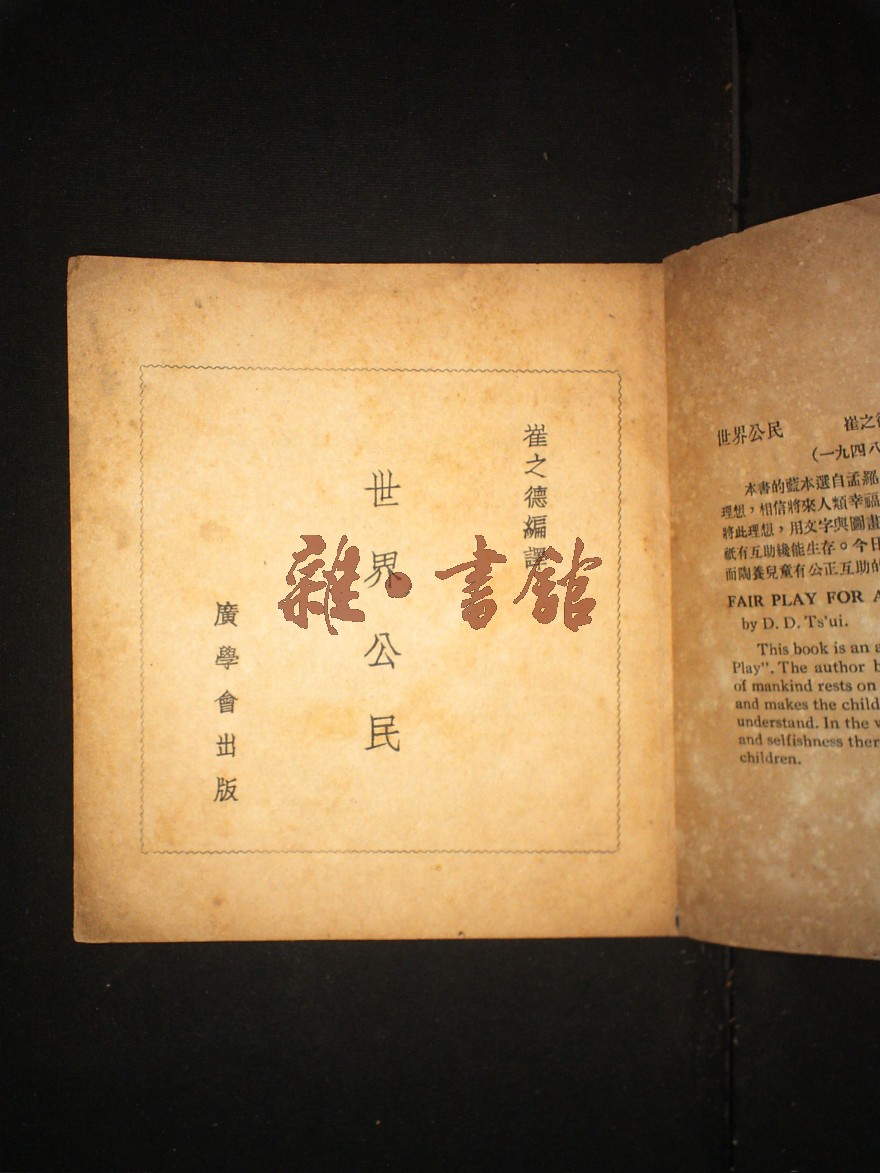 崔之德編譯
世界公民
廣學會出版
雜·書館
世界公民 崔之
(一九四八
本書的藍本選自孟羅
理想，相信將來人類幸福
將此理想，用文字與圖畫
祇有互助纔能生存。今日
而陶養兒童有公正互助的
FAIR PLAY FOR A
by D. D. Ts'ui.
This book is an a
Play". The author b
of mankind rests on
and makes the child
understand. In the v
and selfishness ther
children.